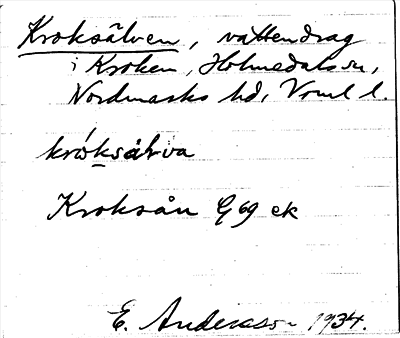 Kroksälven, vattendrag
i Kroken, Holmedals sn,
Nordmarks hd, Vrml l.
króksälva
Kroksån G 69 ek
E. Andersson 1934.